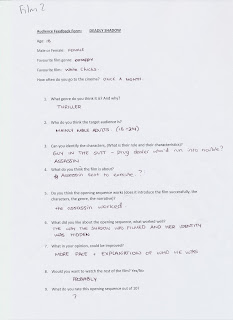 Film 2
Audience Feedback Form: DEADLY SHADOW
Age: 18
Male or Female: Female
Favourite film genre:
Favourite film: White Chicks
How often do you go to the cinema? Once a month
1. What genre do you think is it? And why?
THRILLER
2. Who do you think the target audience is?
MAINLY MALE ADULTS (18-24)
3. Can you identify the characters, (What is their role and their characteristics)?
GUY IN THE SUIT - Drug dealer who'd run into trouble?
ASSASSIN
4. What do you think the film is about?
Assassin sent to execute . ?
5. Do you think the opening sequence works (does it introduce the film successfully, the
characters, the genre, the narrative)?
The assassin worked
6. What did you like about the opening sequence, what worked well?
THE WAY THE SHADOW WAS FILMED AND HER IDENTITY
WAS HIDDEN
7. What in your opinion, could be improved?
MORE FACE + EXPLANATION OF WHO HE WAS
8. Would you want to watch the rest of the film? Yes/No
PROBABLY
9. What do you rate this opening sequence out of 10?
7